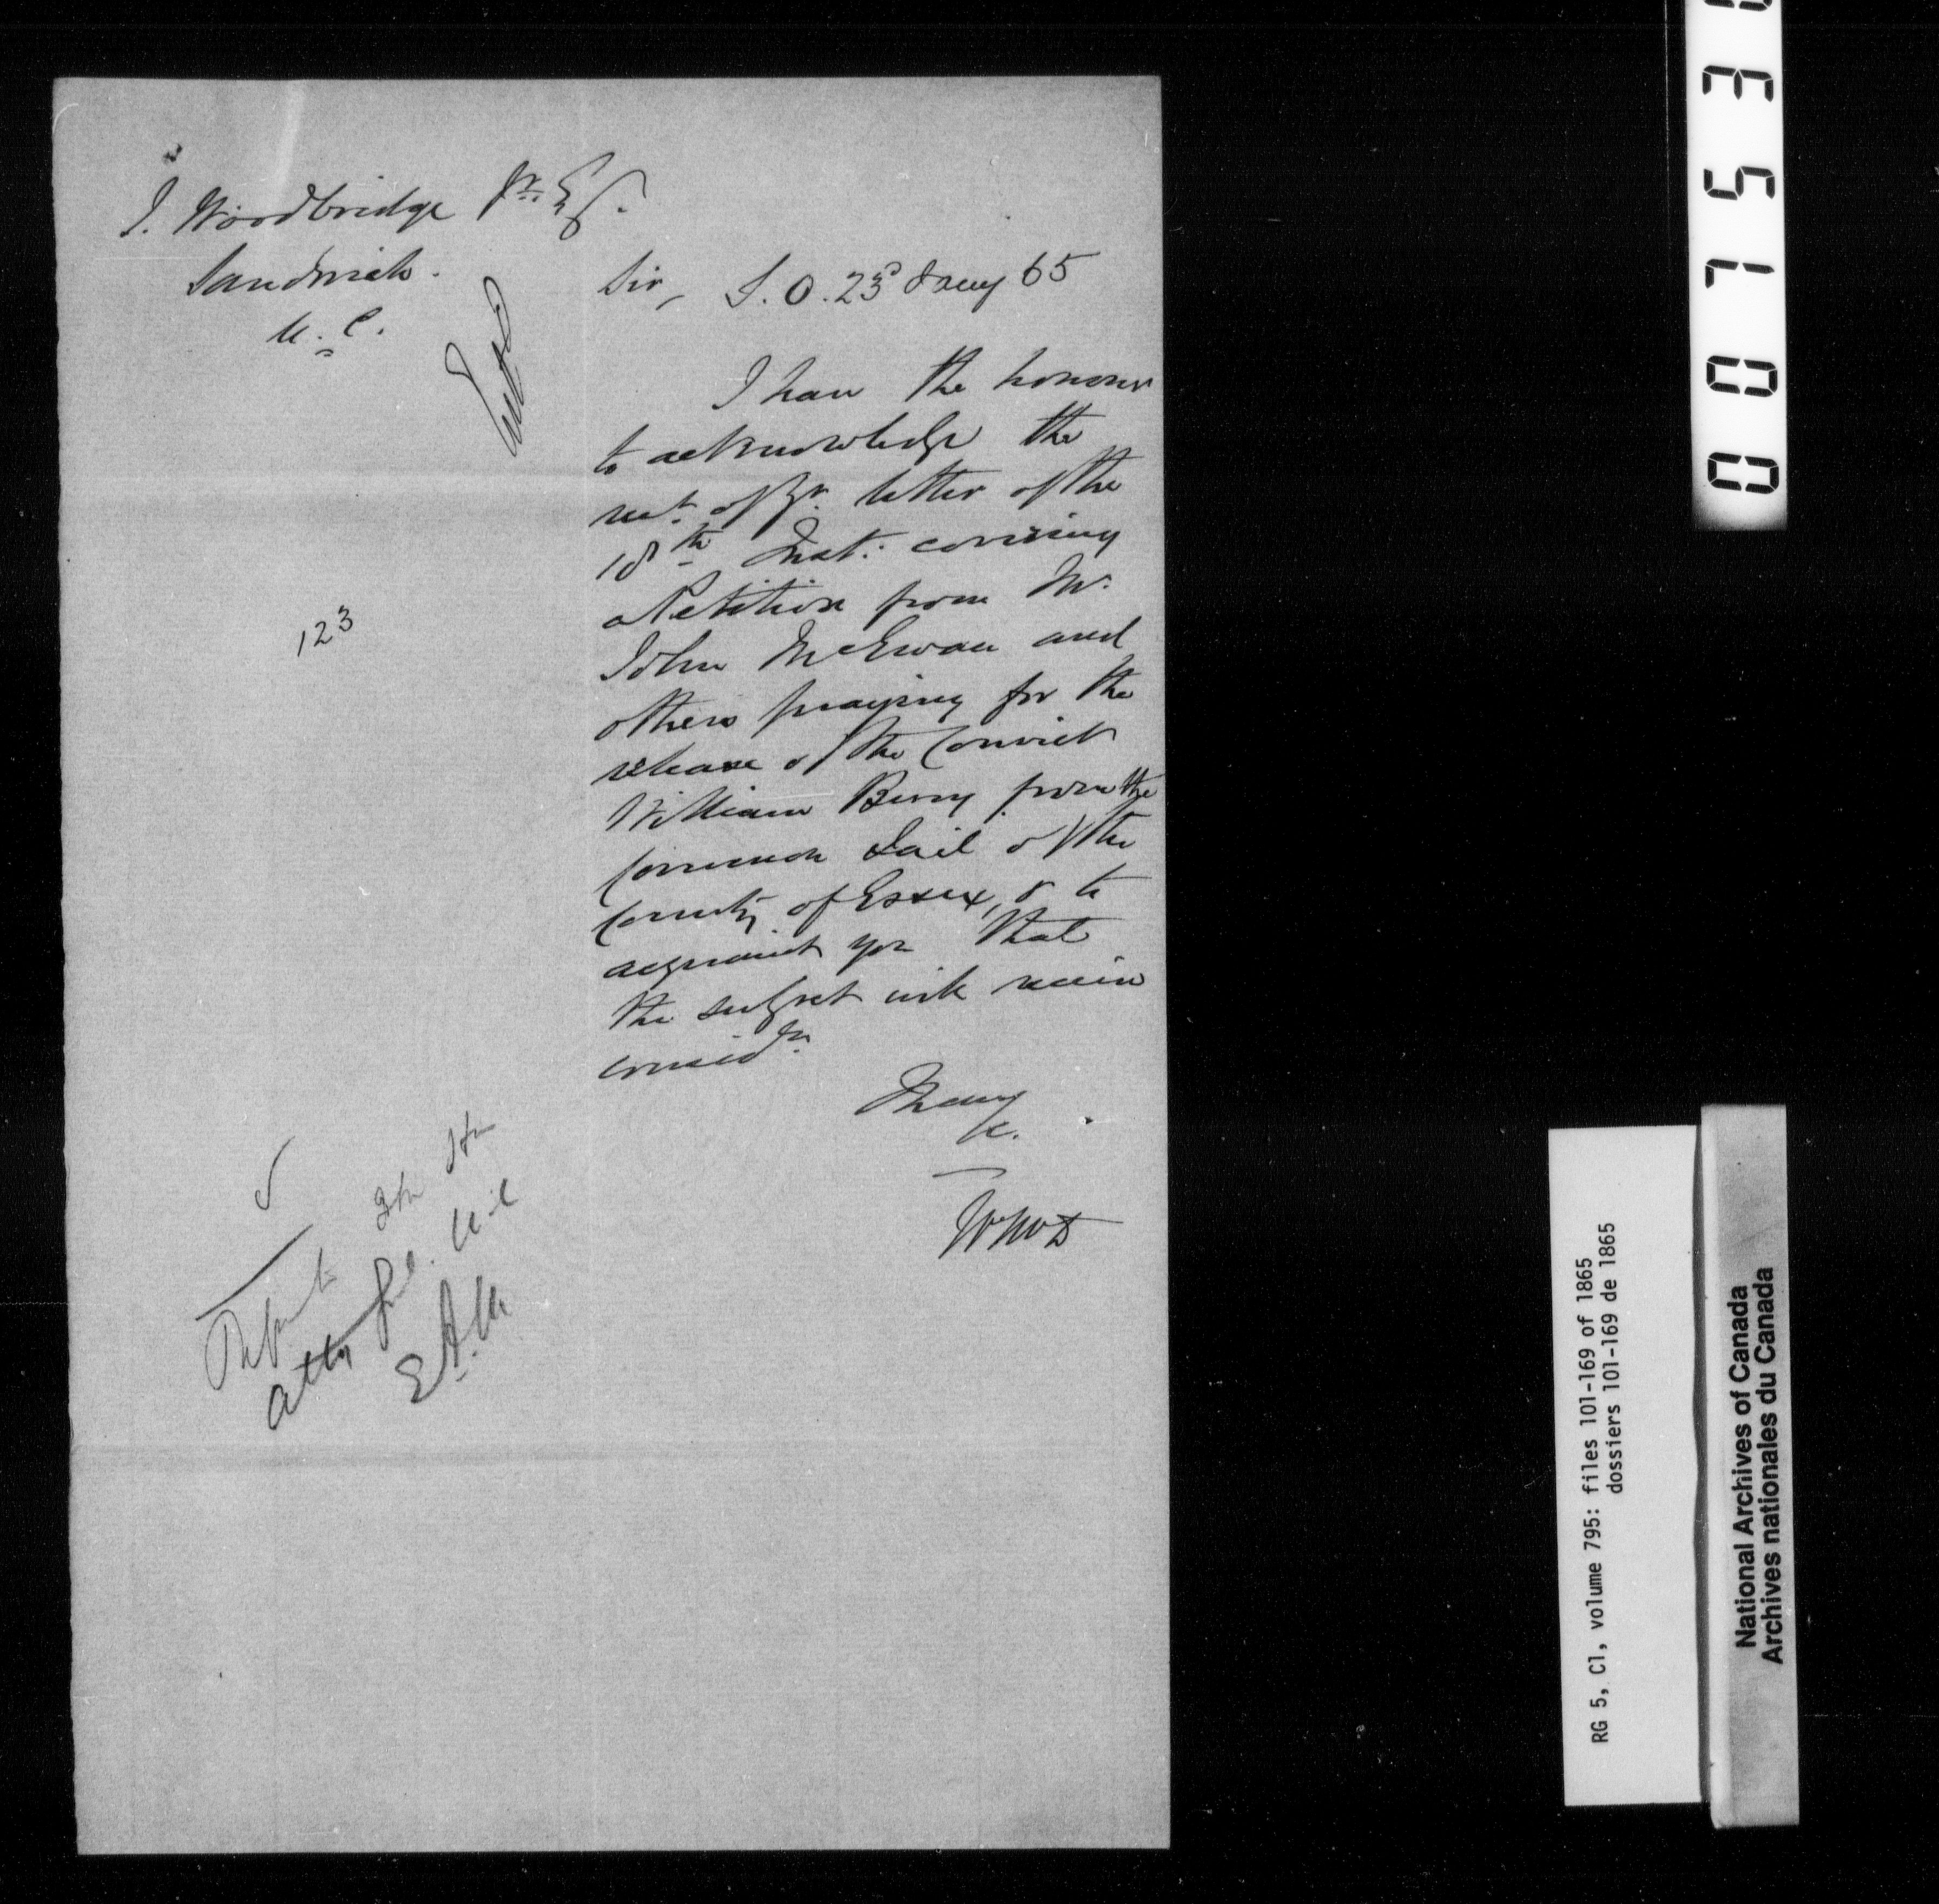 J. Woodbridge Jr. Esq.
Sandwich.
U.C.
Entd
Sir, S.O. 23d Jany 65
I have the honour
to acknowledge the
rect. of yr. letter of the
18th Inst. covering
a Petition from Mr.
John McEwan and
others praying for the
release of the Convict
William Berry from the
Common Gail of the
County of Essex, & to
acquaint you that
the subject will receive
considn.
I have
&c.
123
Atty Genl. U.C
E.A.M
00753
RG 5, C1, volume 795: files 101-169 of 1865
dossiers 101-169 de 1865
National Archives of Canada
Archives nationales du Canada